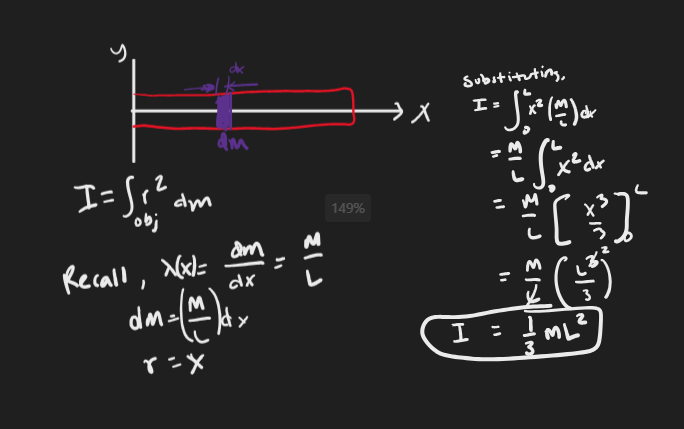 y
dx
x
dm
I = ∫_obj r² dm
Recall, λ(x) = dm/dx = M/L
dm = (M/L) dx
r = x
149%
Substituting,
I = ∫₀ᴸ x² (M/L) dx
= M/L ∫₀ᴸ x² dx
= M/L [x³/3]₀ᴸ
= M/L (L³ ²/3)
I = 1/3 ML²